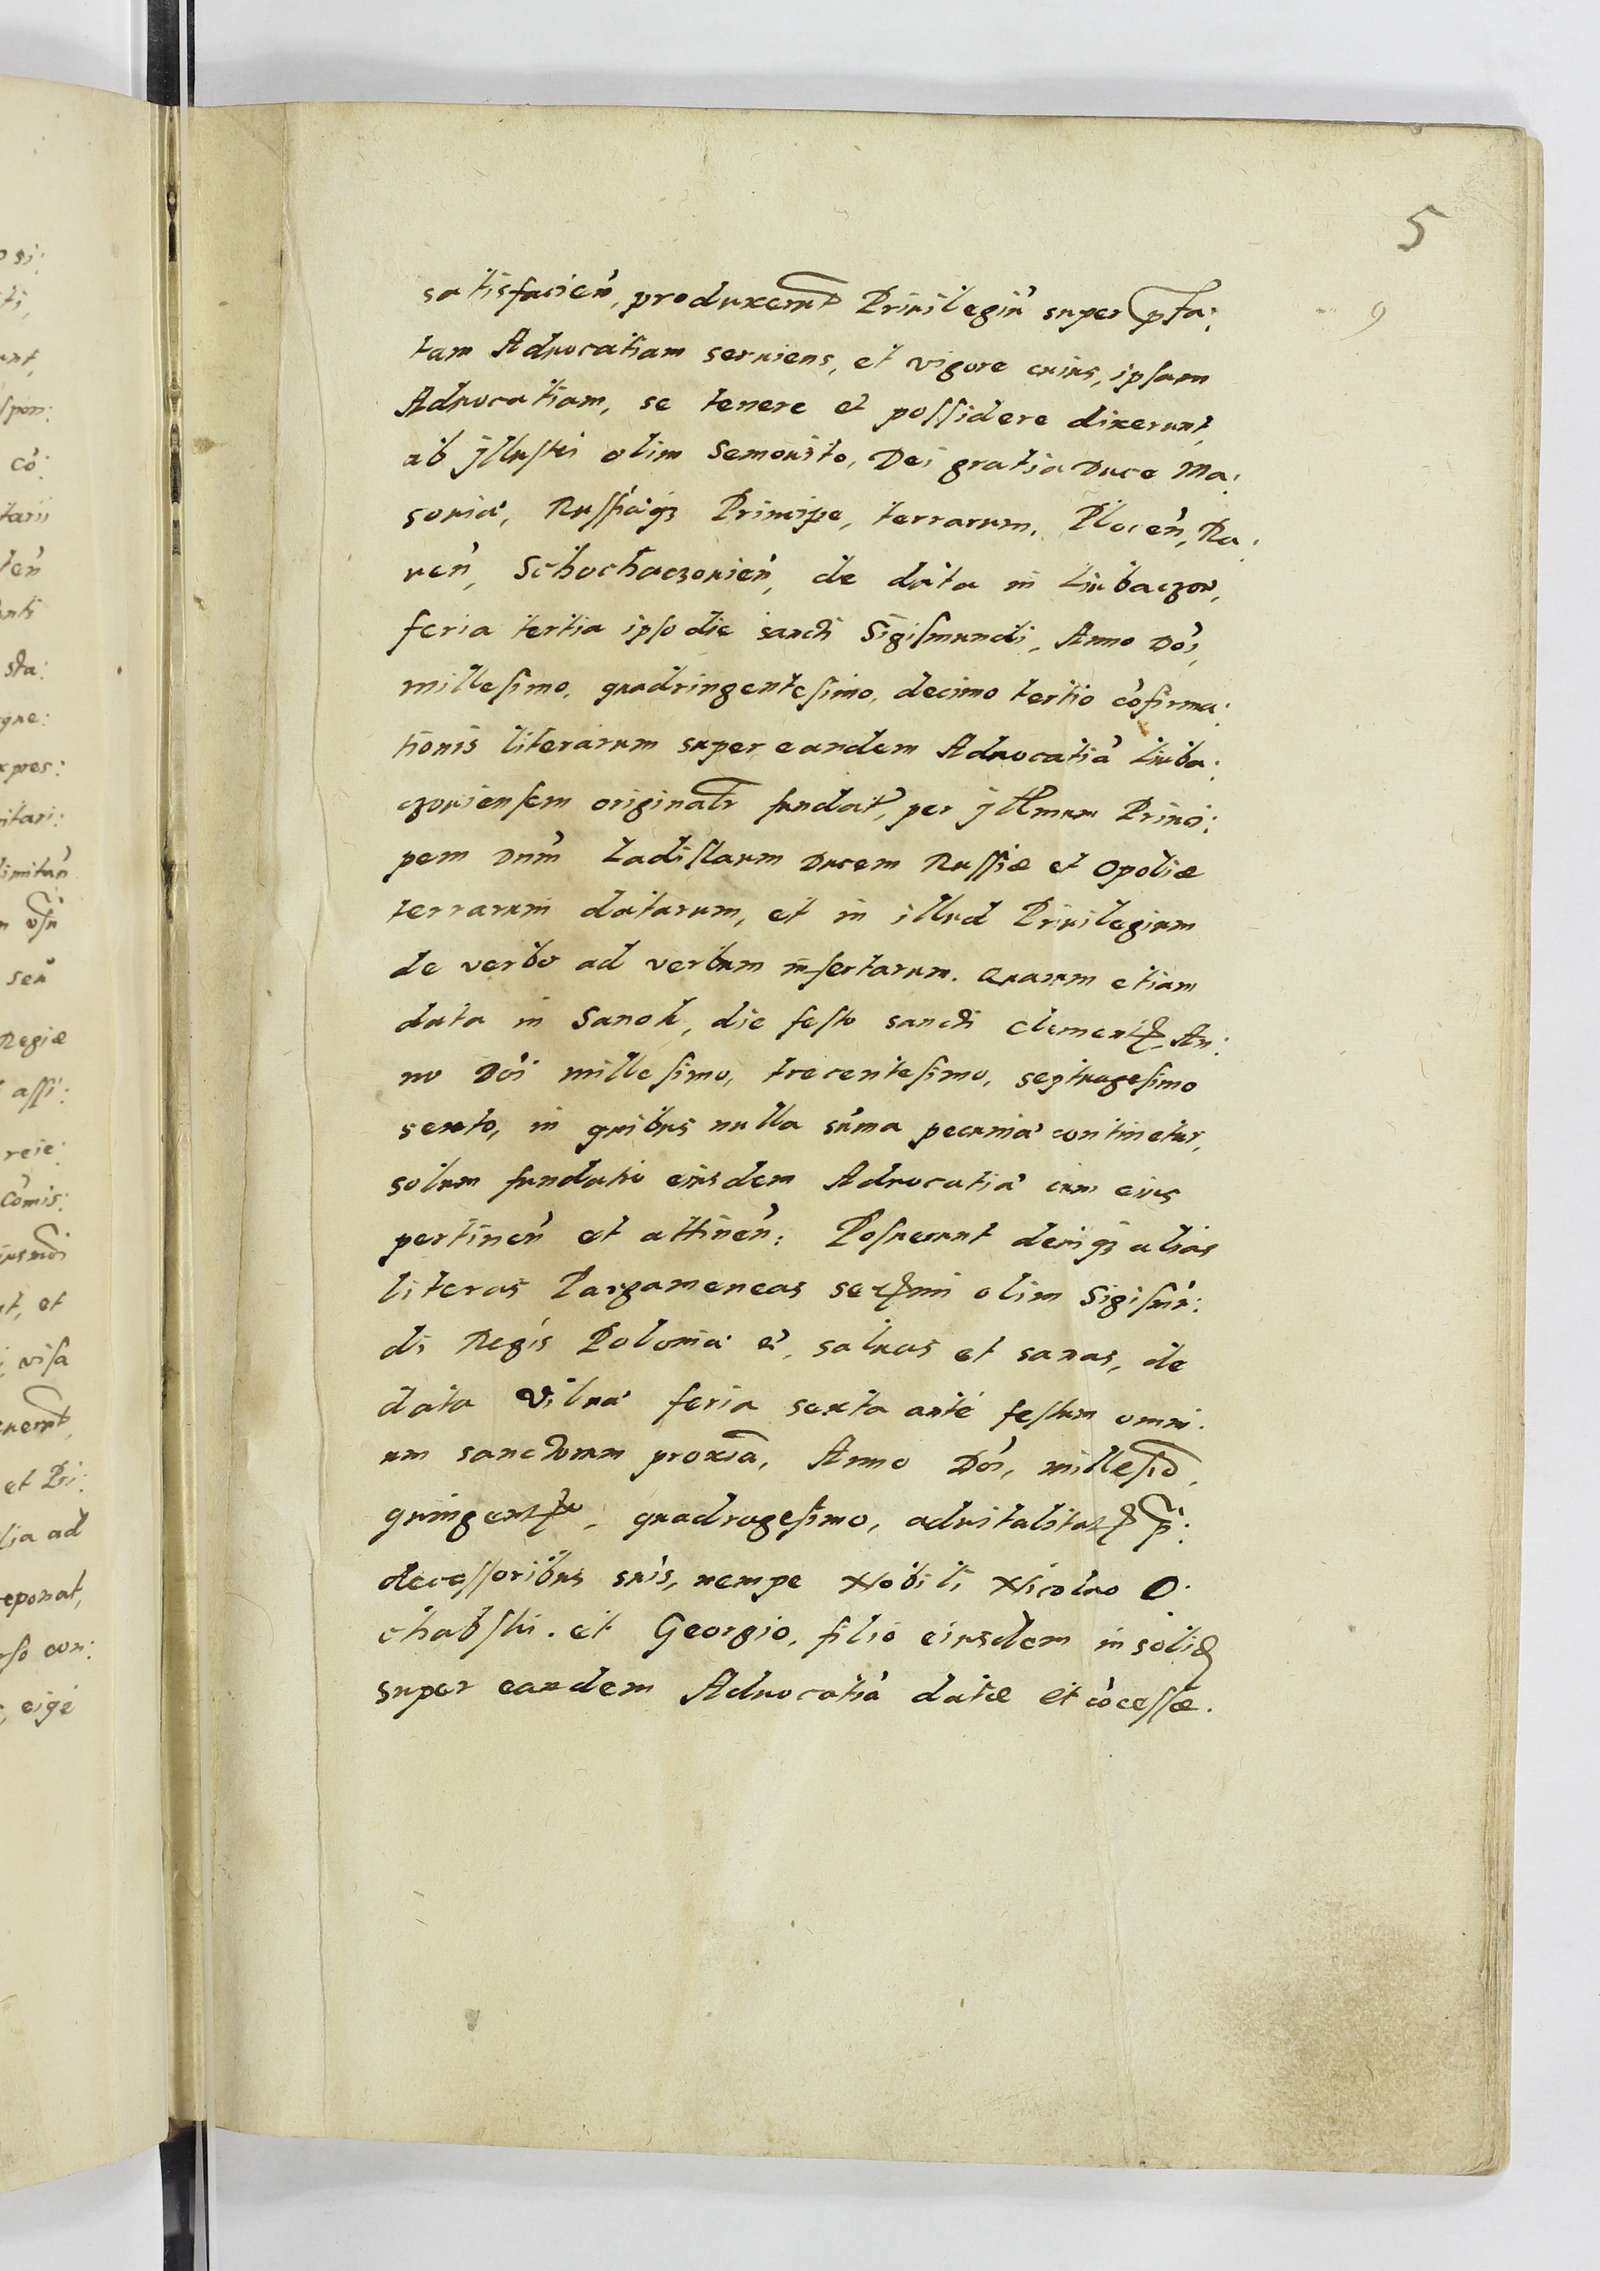 5
9
satisfacień, produxerunt Priuilegiū super p̄fa:
tam Aduocatiam seruiens, et vigore cuius, ipsam
Aduocatiam, se tenere et possidere dixerunt,
ab jllustri olim Semouito, Dei gratia Duce Ma:
souiæ, Russiæq3 Principe, terrarum, Plocen̄, Ra:
uen̄, Schochaczouien̄, de data in Liubaczow,
feria tertia ipso die sancti Sigismundi, Anno Dōi,
millesimo, quadringentesimo, decimo tertio cōfirma:
tionis literarum super eandem Aduocatiā Liuba:
czouiensem originalr fundat, per jllmum Princi:
pem Dnm̄ Ladislaum Ducem Russiæ et Opoliæ
terrarum datarum, et in illud Priuilegium
de verbo ad verbum insertarum. Quarum etiam
data in Sanok, die festo sancti Clementꝭ, An:
no Dōi millesimo, trecentesimo, septuagesimo
sexto, in quibus nulla sūma pecuniæ continetur,
solum fundatio eiusdem Aduocatiæ cum eius
pertinen̄ et attinen̄: Posuerunt deniq3 alias
literas Pargameneas serꝭmi olim Sigismū:
di Regis Poloniæ et, saluas et sanas, de
data Vilnæ feria sexta ante festum omni:
um sanctorum proxīa, Anno Dōi, millesīo,
quingentꝭo, quadragesimo, aduitalitatꝭ p̄:
decessoribus suis, nempe Nobili Nicolao O:
chabski. et Georgio, filio eiusdem in solidꝭ
super eandem Aduocatiā datæ et cōcessæ.
si:
ti,
unt,
spon:
cō:
tarii
ten̄
anti
sta:
que:
xpres:
itari:
limitan̄
seu
Regiæ
assi:
reie:
Cōmis:
et
visa
et Pri:
lia ad
reponat,
con:
eige